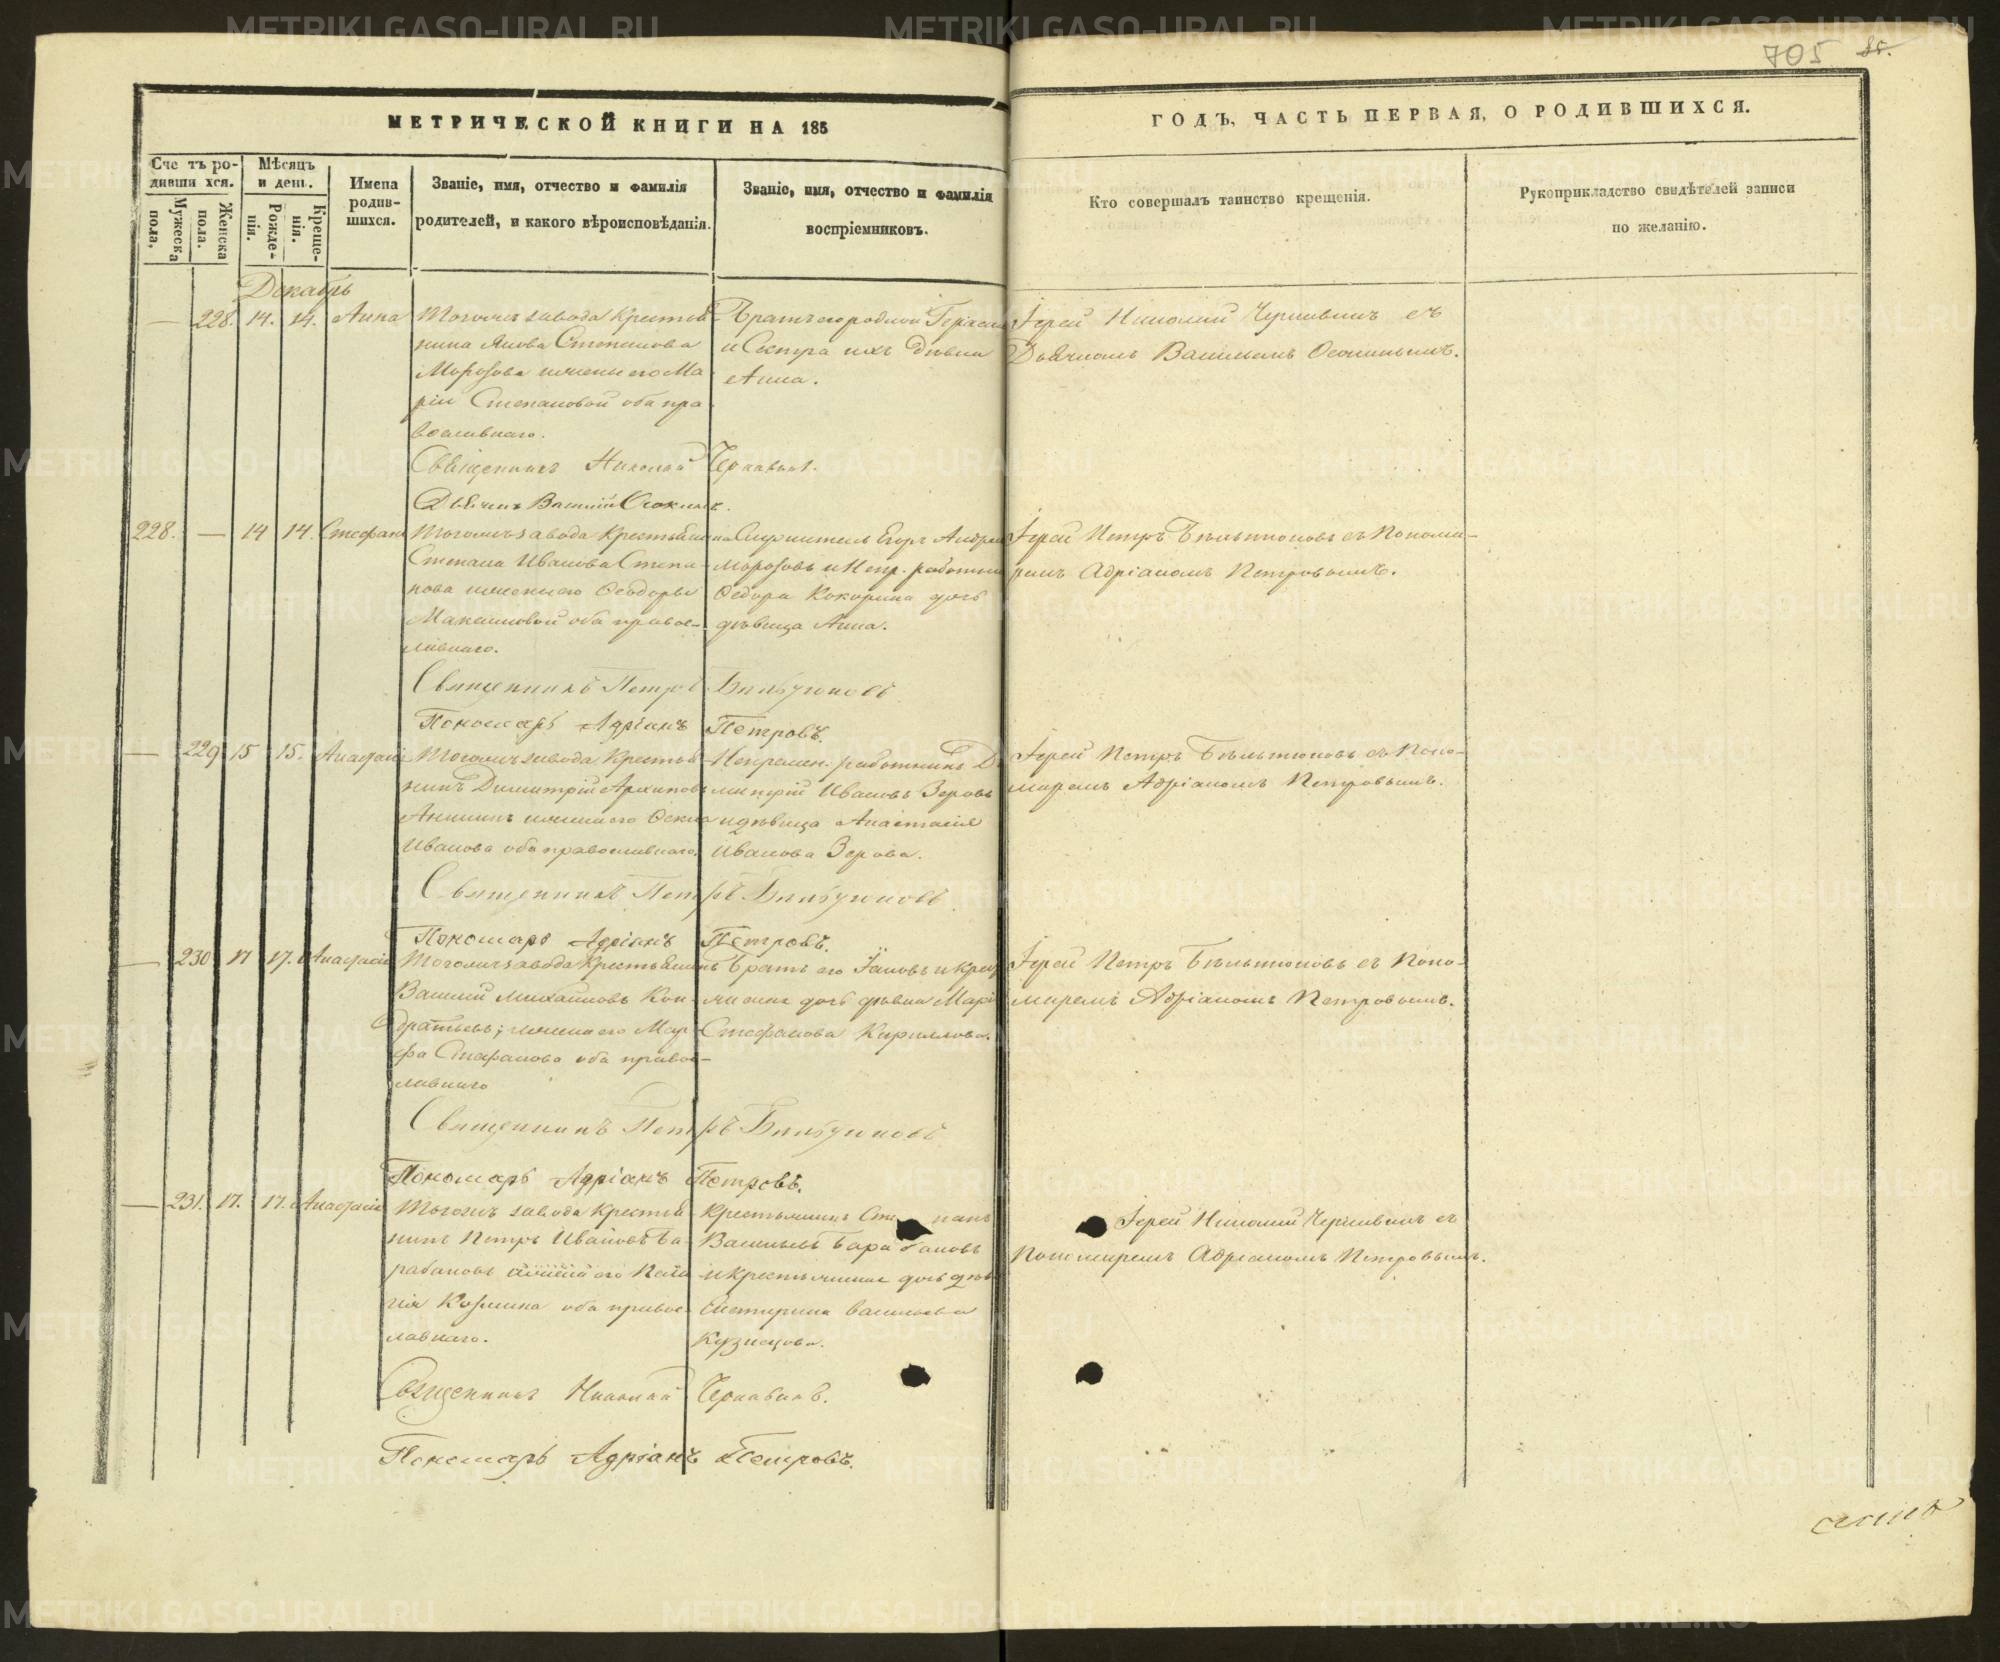 705 85.
МЕТРИЧЕСКОЙ КНИГИ НА 185
ГОДЪ, ЧАСТЬ ПЕРВАЯ, О РОДИВШИХСЯ.
Сче тъ ро-
дивши хся.
Мужеска пола.
Женска пола.
Мѣсяцъ
и день.
Рожде-
нія.
Креще-
нія.
Имена
родив-
шихся.
Званіе, имя, отчество и фамилія
родителей, и какого вѣроисповѣданія.
Званіе, имя, отчество и фамилія
воспріемниковъ.
Кто совершалъ таинство крещенія.
Рукоприкладство свидѣтелей записи
по желанію.
Декабрь
— 228. 14. 14. Анна
Тогожъ завода Крестья
нина Якова Степанова
Морозова и жены его Ма
ріи Степановой оба пра
вославнаго.
Братъ его родной Герасим
и Сестра ихъ дѣвка
Анна.
Іерей Николай Чернавинъ съ
Дьячкомъ Васильемъ Осокинымъ.
Священникъ Николай Чернавинъ.
Дьячекъ Василій Осокинъ.
228. — 14 14. Стефанъ
Тогожъ завода Крестьянина
Степана Иванова Степа-
нова и жены его Феодоры
Максимовой оба правос-
лавнаго.
Служитель Егоръ Андреев
Морозовъ и Непр. работни
Федора Кокорина дочь
дѣвица Анна.
Іерей Петръ Бѣльтюковъ съ Понома-
ремъ Адріаномъ Петровымъ.
Священникъ Петръ Бѣльтюковъ
Пономарь Адріанъ Петровъ.
— 229 15 15. Анастасія
Тогожъ завода Крестья-
нинъ Димитрій Архиповъ
жена его
Иванова оба православнаго.
Непремен. работникъ Ди
митрій Ивановъ Зеровъ
и дѣвица Анастасія
Иванова Зерова.
Іерей Петръ Бѣльтюковъ съ Поно-
маремъ Адріаномъ Петровымъ.
Священникъ Петръ Бѣльтюковъ
Пономарь Адріанъ Петровъ.
— 230 17 17. Анастасія
Тогожъ завода Крестьянинъ
Василій Михайловъ Кон-
дратьевъ; жена его Мар-
фа Стефанова оба правос-
лавнаго
Братъ его Іаковъ и крест
янина дочь дѣвка Марія
Стефанова Кириллова.
Іерей Петръ Бѣльтюковъ съ Поно-
маремъ Адріаномъ Петровымъ.
Священникъ Петръ Бѣльтюковъ
Пономарь Адріанъ Петровъ.
— 231. 17. 17. Анастасія
Тогожъ завода Крестья
нинъ Петръ Ивановъ Ба-
рабановъ жена его Пела
гія Козмина оба правос-
лавнаго.
Крестьянинъ Сте панъ
Васильевъ Бара бановъ
и крестьянина дочь дѣв
Екатерина Васильева
Кузнецова.
Іерей Николай Чернавинъ съ
Пономаремъ Адріаномъ Петровымъ.
Священникъ Николай Чернавинъ.
Пономарь Адріанъ Петровъ.
METRIKI.GASO-URAL.RU